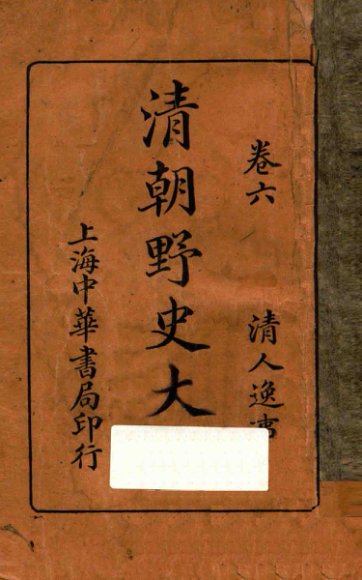 卷六 清人逸書
清朝野史大
上海中華書局印行